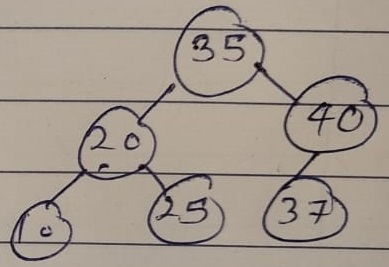 35
20 40
10 25 37